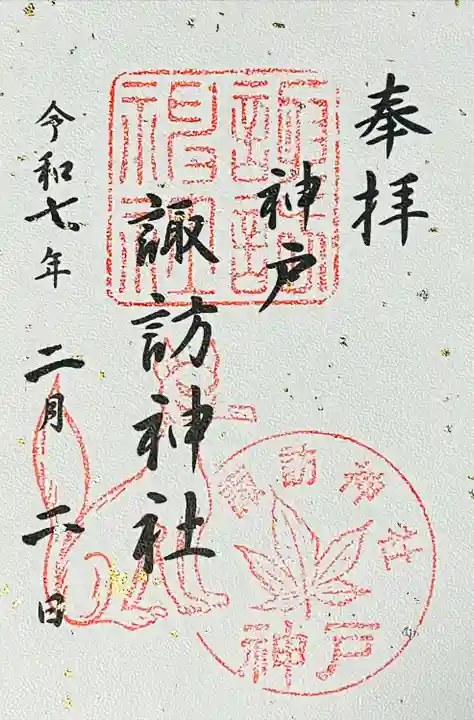 奉拝
神戸
諏訪神社
令和七年
二月
二日
諏訪神社
諏訪神社
神戸